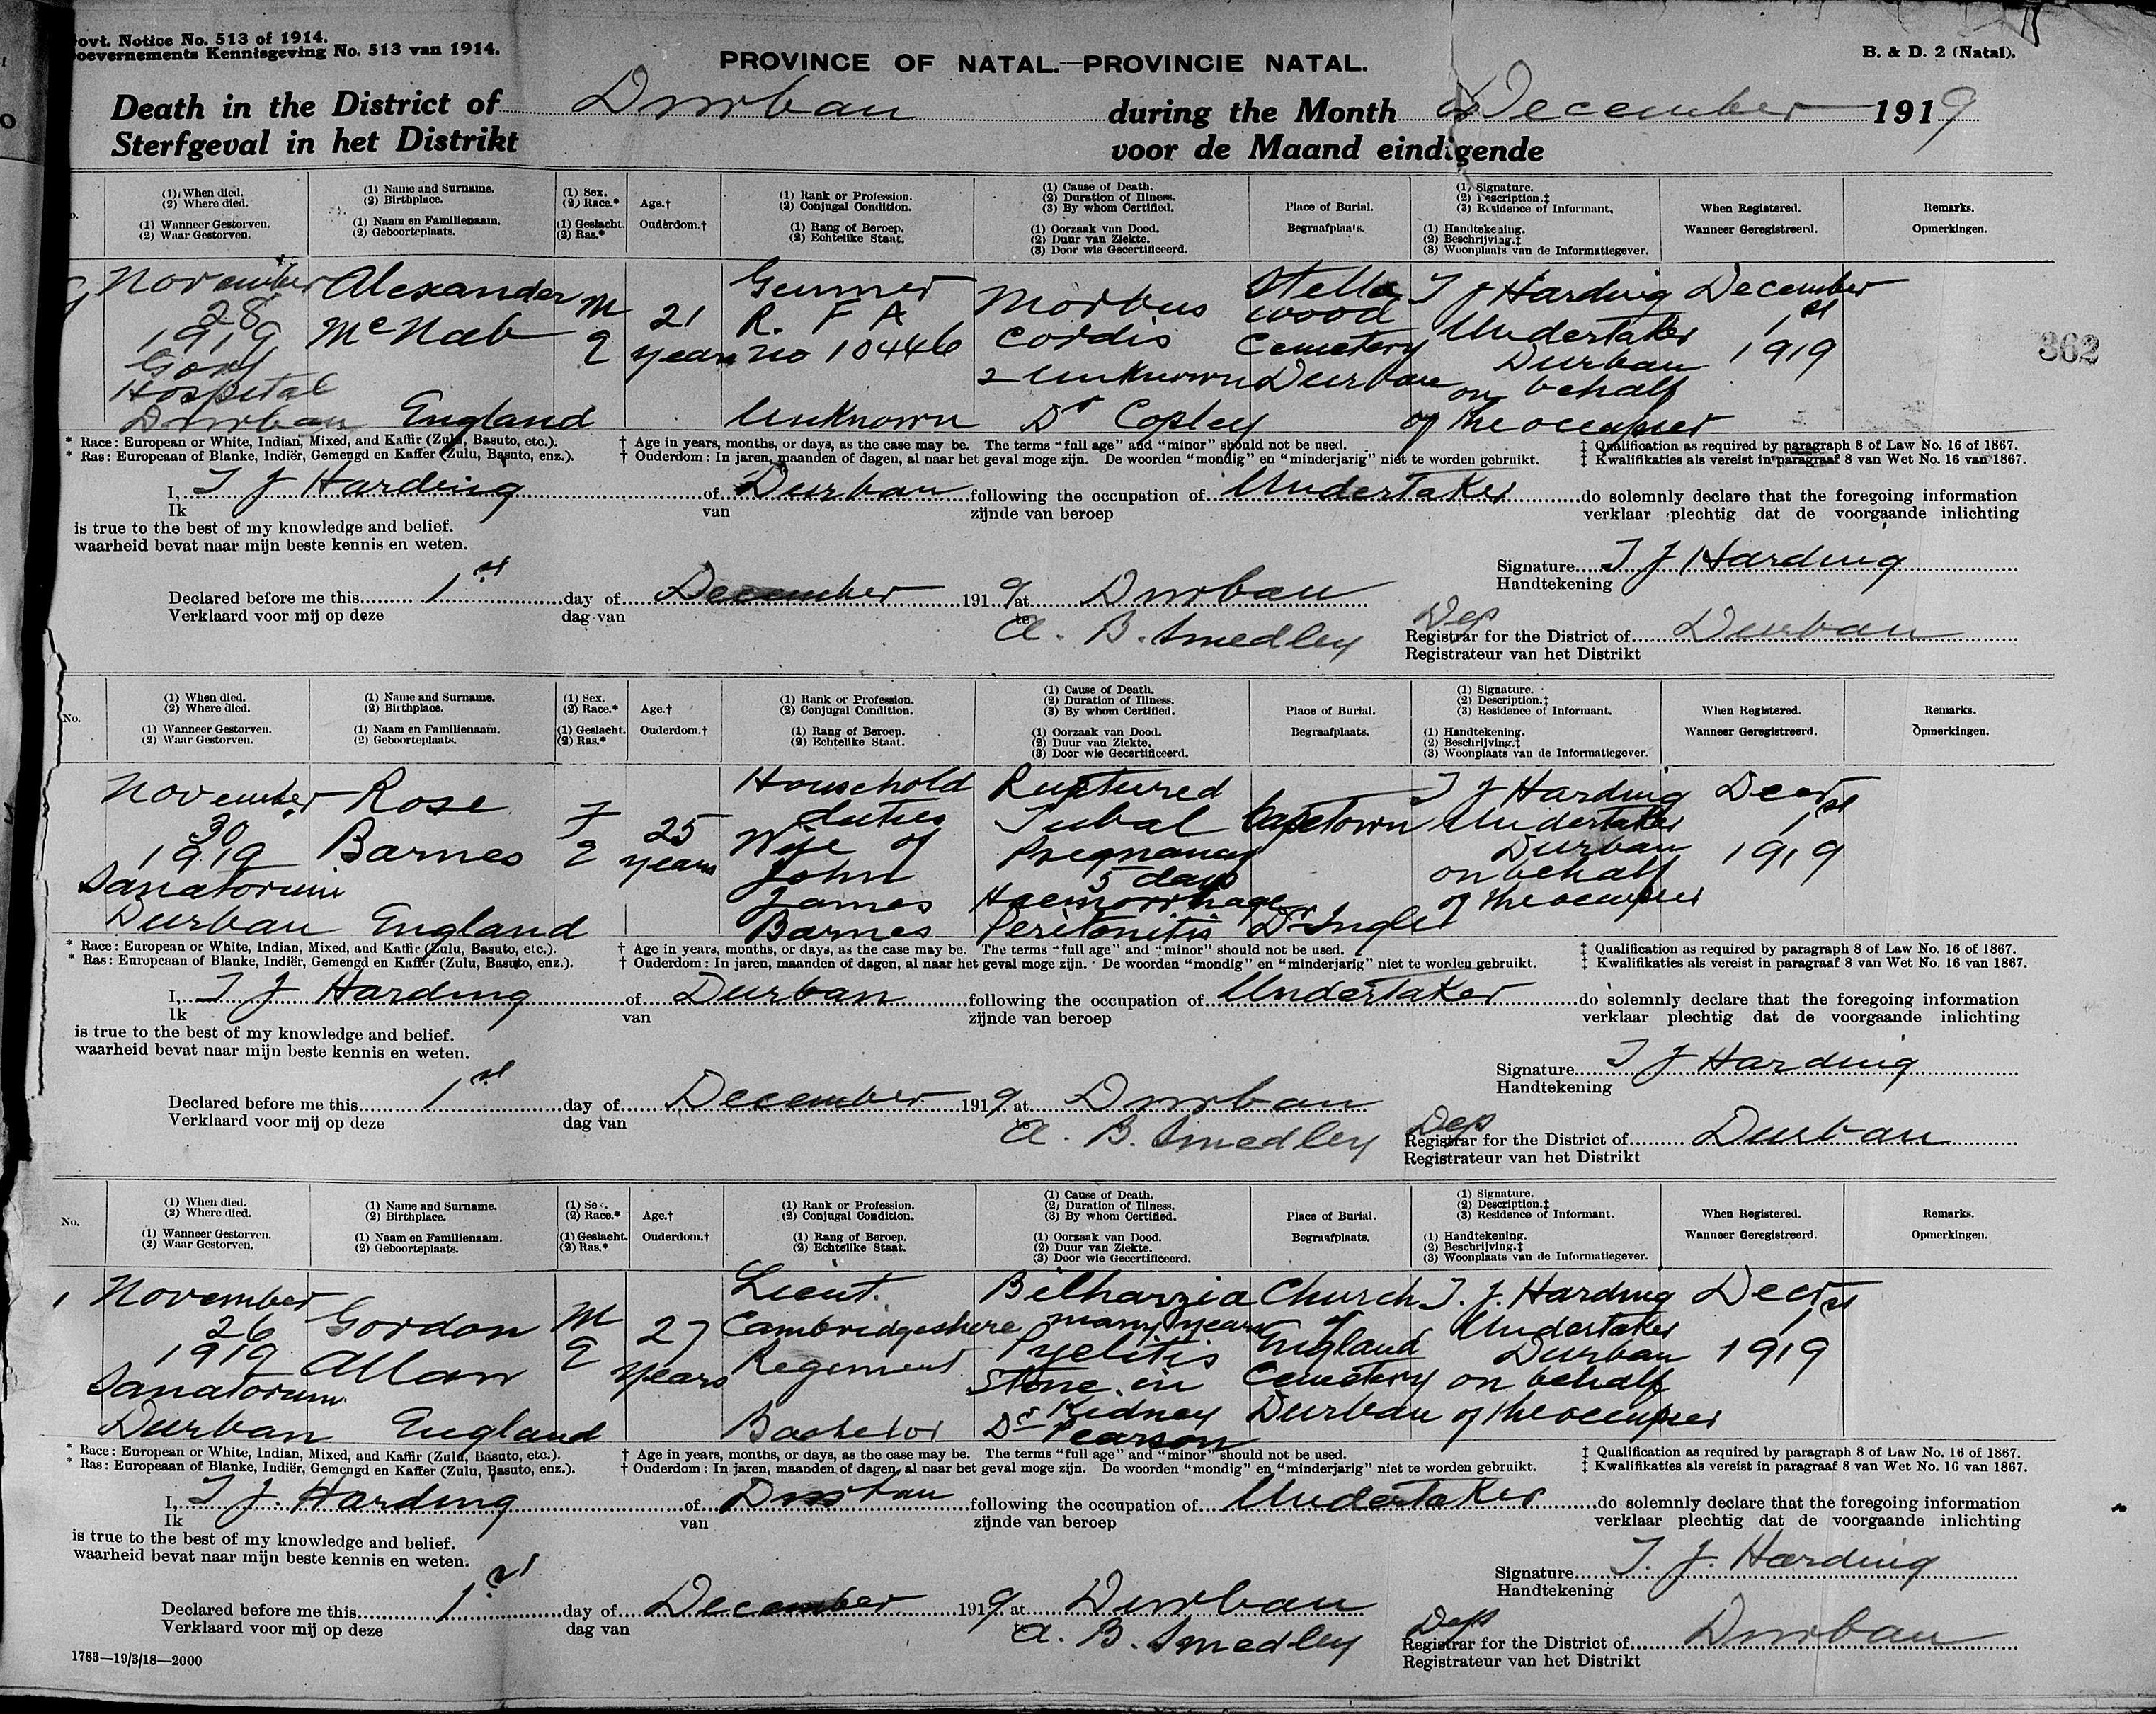 Govt. Notice No. 513 of 1914.
Goevernements Kennisgeving No. 513 van 1914.
PROVINCE OF NATAL.—PROVINCIE NATAL.
B. & D. 2 (Natal).
Death in the District of Durban during the Month December 1919
Sterfgeval in het Distrikt voor de Maand eindigende
(1) When died. (1) Name and Surname. (1) Sex. Age.† (1) Rank or Profession. (1) Cause of Death. Place of Burial. (1) Signature. When Registered. Remarks.
(2) Where died. (2) Birthplace. (2) Race.* (2) Conjugal Condition. (2) Duration of Illness. (2) Description.‡
(3) By whom Certified. (3) Residence of Informant.
(1) Wanneer Gestorven. (1) Naam en Familienaam. (1) Geslacht. Ouderdom.† (1) Rang of Beroep. (1) Oorzaak van Dood. Begraafplaats. (1) Handtekening. Wanneer Geregistreerd. Opmerkingen.
(2) Waar Gestorven. (2) Geboorteplaats. (2) Ras.* (2) Echtelike Staat. (2) Duur van Ziekte. (2) Beschrijving.‡
(3) Door wie Gecertificeerd. (3) Woonplaats van de Informatiegever.
November Alexander M 21 Gunner Morbus Stella T J Harding December
28 McNab E years R. F A Cordis wood Undertaker 1st
1919 no 10446 2 Unknown Cemetery Durban 1919
Govt Durban on behalf
Hospital of the occupier
Durban England Unknown Dr Copley
362
* Race: European or White, Indian, Mixed, and Kaffir (Zulu, Basuto, etc.). † Age in years, months, or days, as the case may be. The terms "full age" and "minor" should not be used. ‡ Qualification as required by paragraph 8 of Law No. 16 of 1867.
* Ras: Europeaan of Blanke, Indiër, Gemengd en Kaffer (Zulu, Basuto, enz.). † Ouderdom: In jaren, maanden of dagen, al naar het geval moge zijn. De woorden "mondig" en "minderjarig" niet te worden gebruikt. ‡ Kwalifikaties als vereist in paragraaf 8 van Wet No. 16 van 1867.
I, T J Harding of Durban following the occupation of Undertaker do solemnly declare that the foregoing information
Ik van zijnde van beroep verklaar plechtig dat de voorgaande inlichting
is true to the best of my knowledge and belief.
waarheid bevat naar mijn beste kennis en weten.
Signature T J Harding
Handtekening
Declared before me this 1st day of December 1919 at Durban
Verklaard voor mij op deze dag van te
A. B. Smedley
Dep
Registrar for the District of Durban
Registrateur van het Distrikt
No. (1) When died. (1) Name and Surname. (1) Sex. Age.† (1) Rank or Profession. (1) Cause of Death. Place of Burial. (1) Signature. When Registered. Remarks.
(2) Where died. (2) Birthplace. (2) Race.* (2) Conjugal Condition. (2) Duration of Illness. (2) Description.‡
(3) By whom Certified. (3) Residence of Informant.
(1) Wanneer Gestorven. (1) Naam en Familienaam. (1) Geslacht. Ouderdom.† (1) Rang of Beroep. (1) Oorzaak van Dood. Begraafplaats. (1) Handtekening. Wanneer Geregistreerd. Opmerkingen.
(2) Waar Gestorven. (2) Geboorteplaats. (2) Ras.* (2) Echtelike Staat. (2) Duur van Ziekte. (2) Beschrijving.‡
(3) Door wie Gecertificeerd. (3) Woonplaats van de Informatiegever.
November Rose F 25 Household Ruptured Capetown T J Harding Decr
30 Barnes E years duties Tubal Undertaker 1st
1919 Wife of Pregnancy Durban 1919
Sanatorium John 5 days on behalf
James Haemorrhage of the occupier
Durban England Barnes Peritonitis Dr Ingle
* Race: European or White, Indian, Mixed, and Kaffir (Zulu, Basuto, etc.). † Age in years, months, or days, as the case may be. The terms "full age" and "minor" should not be used. ‡ Qualification as required by paragraph 8 of Law No. 16 of 1867.
* Ras: Europeaan of Blanke, Indiër, Gemengd en Kaffer (Zulu, Basuto, enz.). † Ouderdom: In jaren, maanden of dagen, al naar het geval moge zijn. De woorden "mondig" en "minderjarig" niet te worden gebruikt. ‡ Kwalifikaties als vereist in paragraaf 8 van Wet No. 16 van 1867.
I, T J Harding of Durban following the occupation of Undertaker do solemnly declare that the foregoing information
Ik van zijnde van beroep verklaar plechtig dat de voorgaande inlichting
is true to the best of my knowledge and belief.
waarheid bevat naar mijn beste kennis en weten.
Signature T J Harding
Handtekening
Declared before me this 1st day of December 1919 at Durban
Verklaard voor mij op deze dag van te
A. B. Smedley
Dep
Registrar for the District of Durban
Registrateur van het Distrikt
No. (1) When died. (1) Name and Surname. (1) Sex. Age.† (1) Rank or Profession. (1) Cause of Death. Place of Burial. (1) Signature. When Registered. Remarks.
(2) Where died. (2) Birthplace. (2) Race.* (2) Conjugal Condition. (2) Duration of Illness. (2) Description.‡
(3) By whom Certified. (3) Residence of Informant.
(1) Wanneer Gestorven. (1) Naam en Familienaam. (1) Geslacht. Ouderdom.† (1) Rang of Beroep. (1) Oorzaak van Dood. Begraafplaats. (1) Handtekening. Wanneer Geregistreerd. Opmerkingen.
(2) Waar Gestorven. (2) Geboorteplaats. (2) Ras.* (2) Echtelike Staat. (2) Duur van Ziekte. (2) Beschrijving.‡
(3) Door wie Gecertificeerd. (3) Woonplaats van de Informatiegever.
November Gordon M 27 Lieut. Bilharzia Church T. J. Harding Decr
26 Allan E years Cambridgeshire many years of Undertaker 1st
1919 Regement Pyelitis England Durban 1919
Sanatorium Stone in Cemetery on behalf
Kidney Durban of the occupier
Durban England Bachelor Dr Pearson
* Race: European or White, Indian, Mixed, and Kaffir (Zulu, Basuto, etc.). † Age in years, months, or days, as the case may be. The terms "full age" and "minor" should not be used. ‡ Qualification as required by paragraph 8 of Law No. 16 of 1867.
* Ras: Europeaan of Blanke, Indiër, Gemengd en Kaffer (Zulu, Basuto, enz.). † Ouderdom: In jaren, maanden of dagen, al naar het geval moge zijn. De woorden "mondig" en "minderjarig" niet te worden gebruikt. ‡ Kwalifikaties als vereist in paragraaf 8 van Wet No. 16 van 1867.
I, T J. Harding of Durban following the occupation of Undertaker do solemnly declare that the foregoing information
Ik van zijnde van beroep verklaar plechtig dat de voorgaande inlichting
is true to the best of my knowledge and belief.
waarheid bevat naar mijn beste kennis en weten.
Signature T. J. Harding
Handtekening
Declared before me this 1st day of December 1919 at Durban
Verklaard voor mij op deze dag van te
A. B. Smedley
Dep
Registrar for the District of Durban
Registrateur van het Distrikt
1783—19/3/18—2000